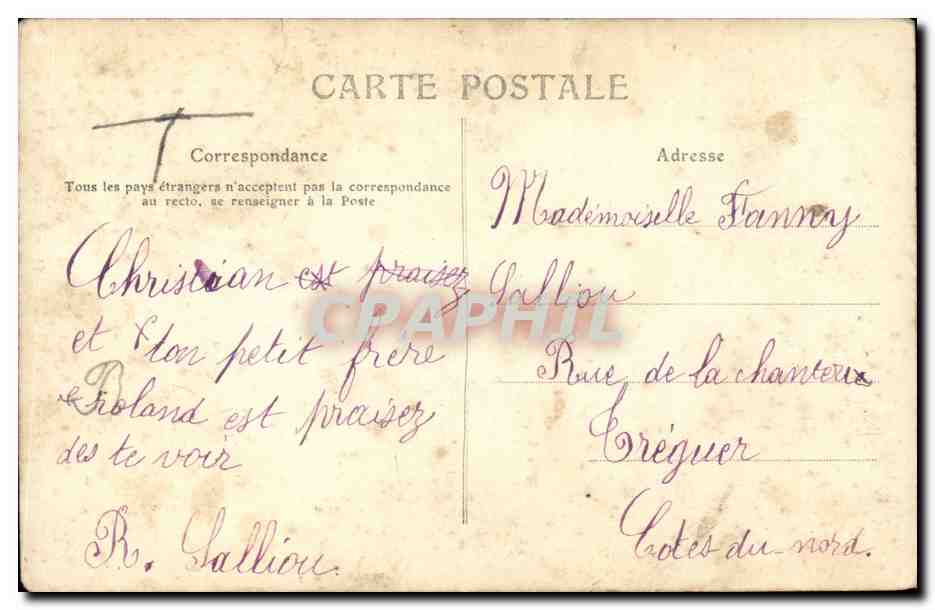 CARTE POSTALE
T
Correspondance
Tous les pays étrangers n'acceptent pas la correspondance
au recto, se renseigner à la Poste
Christian est praisez
et ton petit frere
Roland est praisez
des te voir
R. Salliou.
Adresse
Mademoiselle Fanny
Salliou
Rue de la chanterie
Tréguer
Cotes du nord.
CPAPHIL